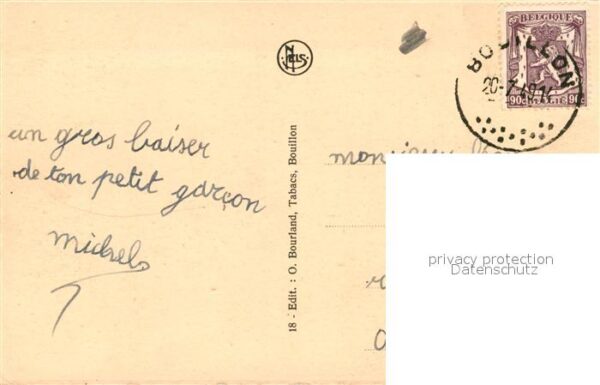 BELGIQUE
90c BELGIE 90c
BOUILLON
20-7 49 14
NELS
un gros baiser
de ton petit garçon
Michel
monsieur
18 - Edit. : O. Bourland, Tabacs, Bouillon
privacy protection
Datenschutz